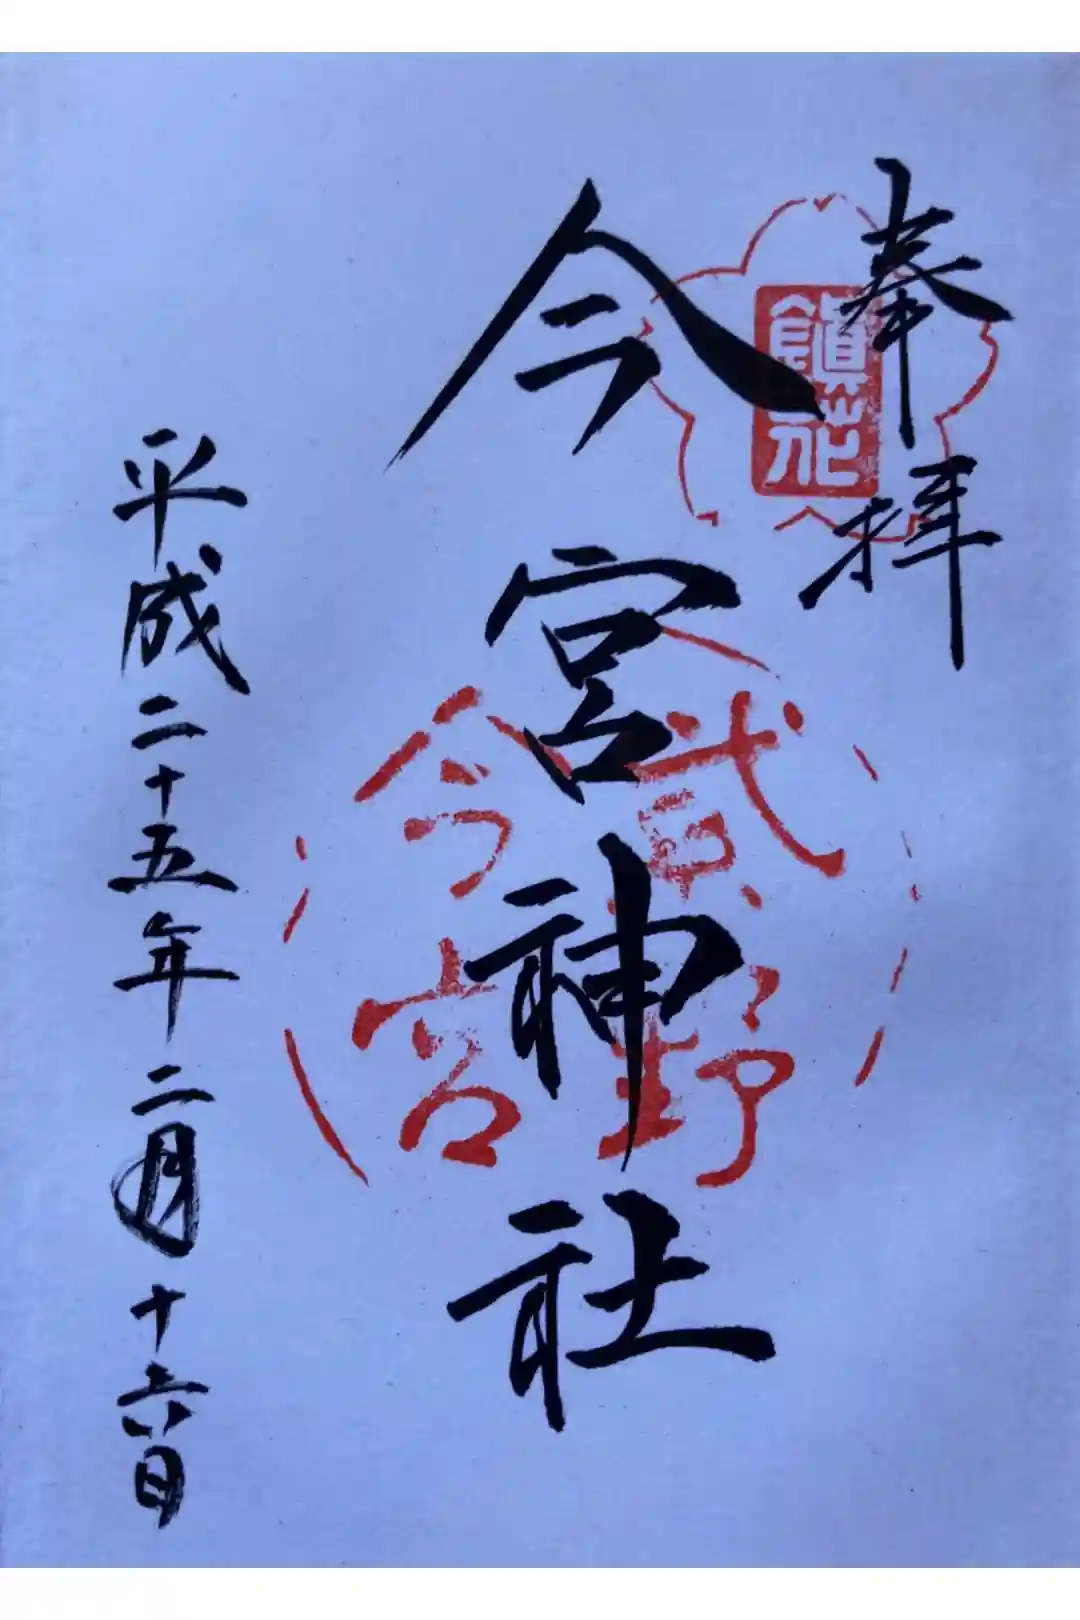 奉拝
鎮花
今宮神社
紫野
今宮
平成二十五年二月十六日